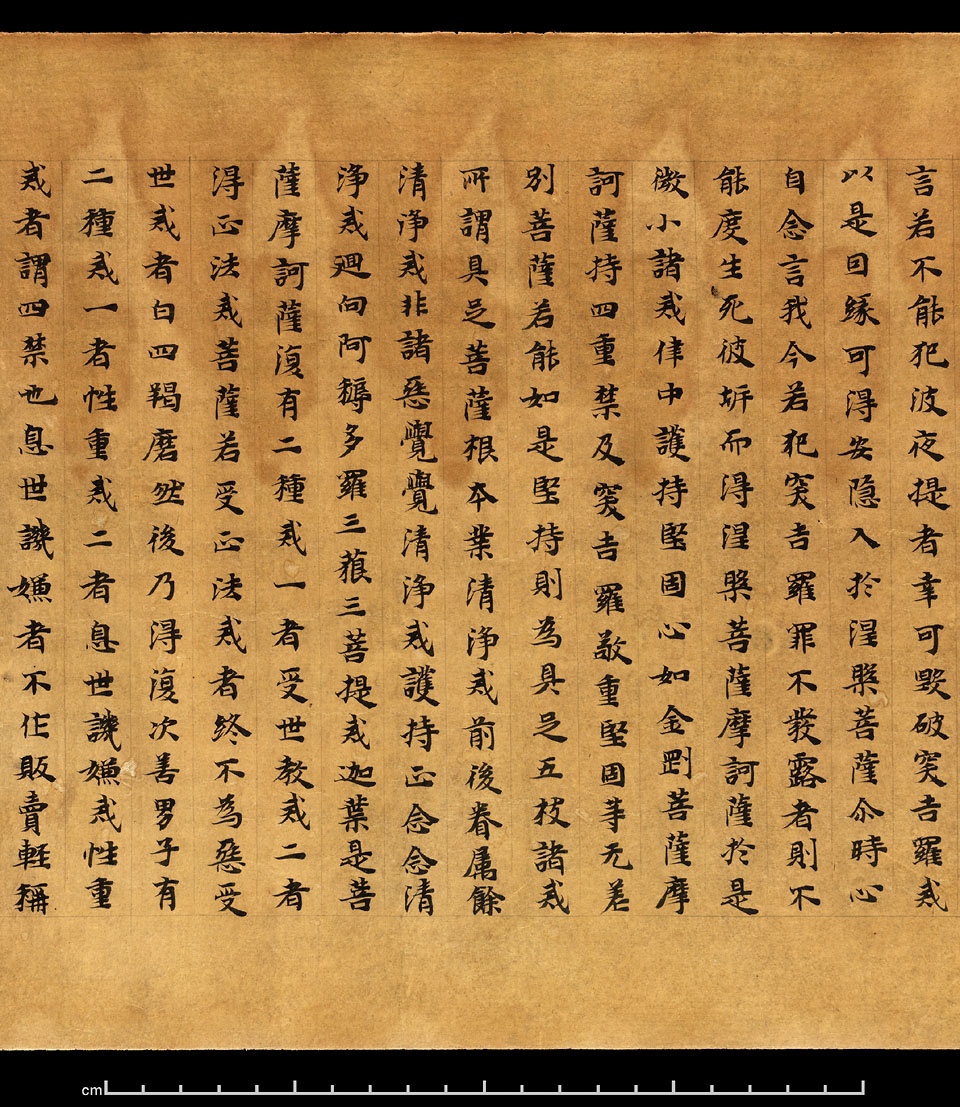 言若不能犯波夜提者幸可毀破突吉羅戒
以是因緣可得安隱入於涅槃菩薩尒時心
自念言我今若犯突吉羅罪不發露者則不
能度生死彼岸而得涅槃菩薩摩訶薩於是
微小諸戒律中護持堅固心如金剛菩薩摩
訶薩持四重禁及突吉羅敬重堅固等无差
別菩薩若能如是堅持則為具足五枝諸戒
所謂具足菩薩根本業清淨戒前後眷属餘
清淨戒非諸惡覺覺清淨戒護持正念念清
淨戒迴向阿耨多羅三藐三菩提戒迦葉是菩
薩摩訶薩復有二種戒一者受世教戒二者
得正法戒菩薩若受正法戒者終不為惡受
世戒者白四羯磨然後乃得復次善男子有
二種戒一者性重戒二者息世譏嫌戒性重
戒者謂四禁也息世譏嫌者不作販賣輕稱